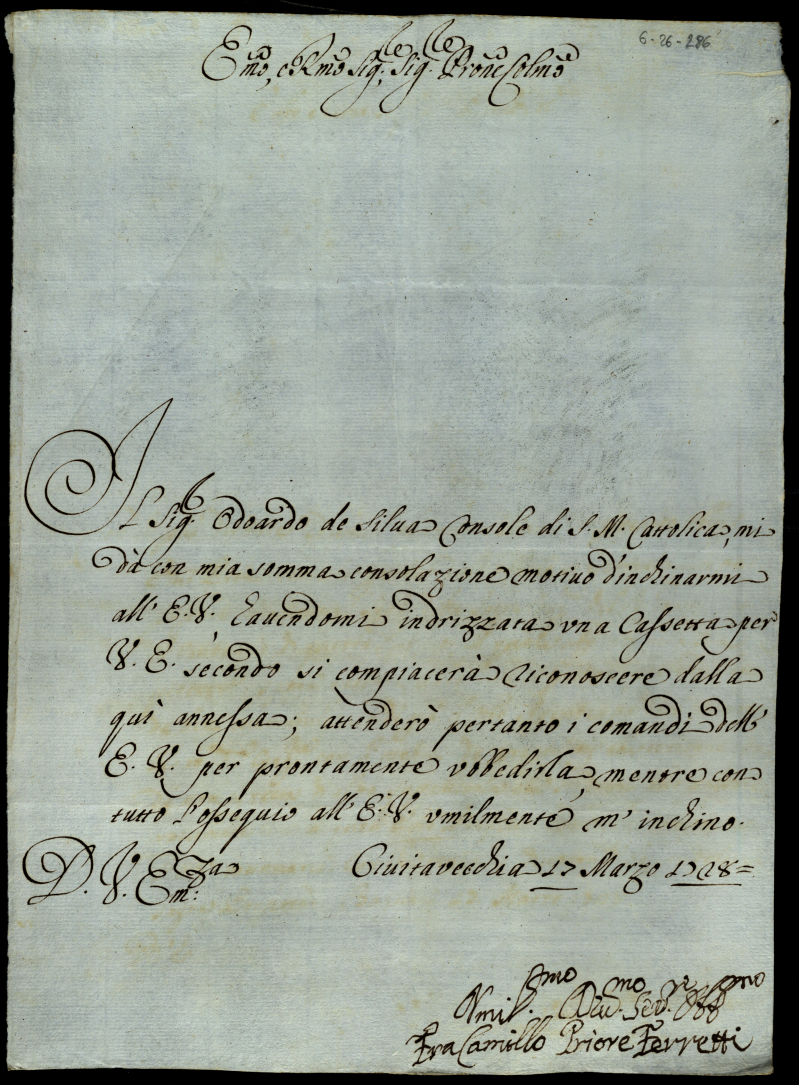 6-26-286
Em̃o, e Rm̃o Sig.re, Sig.re Prõne Colm̃o
Il Sig.r Odoardo de Silua Console di S. M. Cattolica, mi
dà con mia somma consolazione motiuo d'inchinarmi
all' E. V. hauendomi indrizzata vna Cassetta per
V. E. secondo si compiacerà riconoscere dalla
quì annessa; attenderò pertanto i comandi dell'
E. V. per prontamente vbbedirla, mentre con
tutto l'ossequio all' E. V. vmilmente m' inchino.
D. V. Em.za Ciuitavecchia 17 Marzo 1728=
Vmil.mo Deu.mo Ser.re Obb.mo
Fra Camillo Priore Ferretti